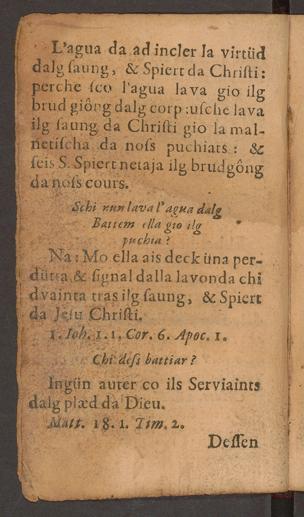 L'agua da ad incler la virtüd
dalg saung, & Spiert da Chriſti:
perche ſco l'agua lava gio ilg
brud giông dalg corp :uſche lava
ilg ſaung da Chriſti gio la mal-
netiſcha da noſs puchiats : &
ſeis S. Spiert netaja ilg brudgông
da noſs cours.
Schi nun lava l'agua dalg
Battem ella gio ilg
puchia ?
Na : Mo ella ais deck üna per-
dütta & ſignal dalla lavonda chi
dvainta tras ilg ſaung, & Spiert
da Jeſu Chriſti.
1. Joh. 1. 1. Cor. 6. Apoc. 1.
Chi deſs battiar ?
Ingün auter co ils Serviaints
dalg plæd da Dieu.
Matt. 18. 1. Tim. 2.
Deſſen